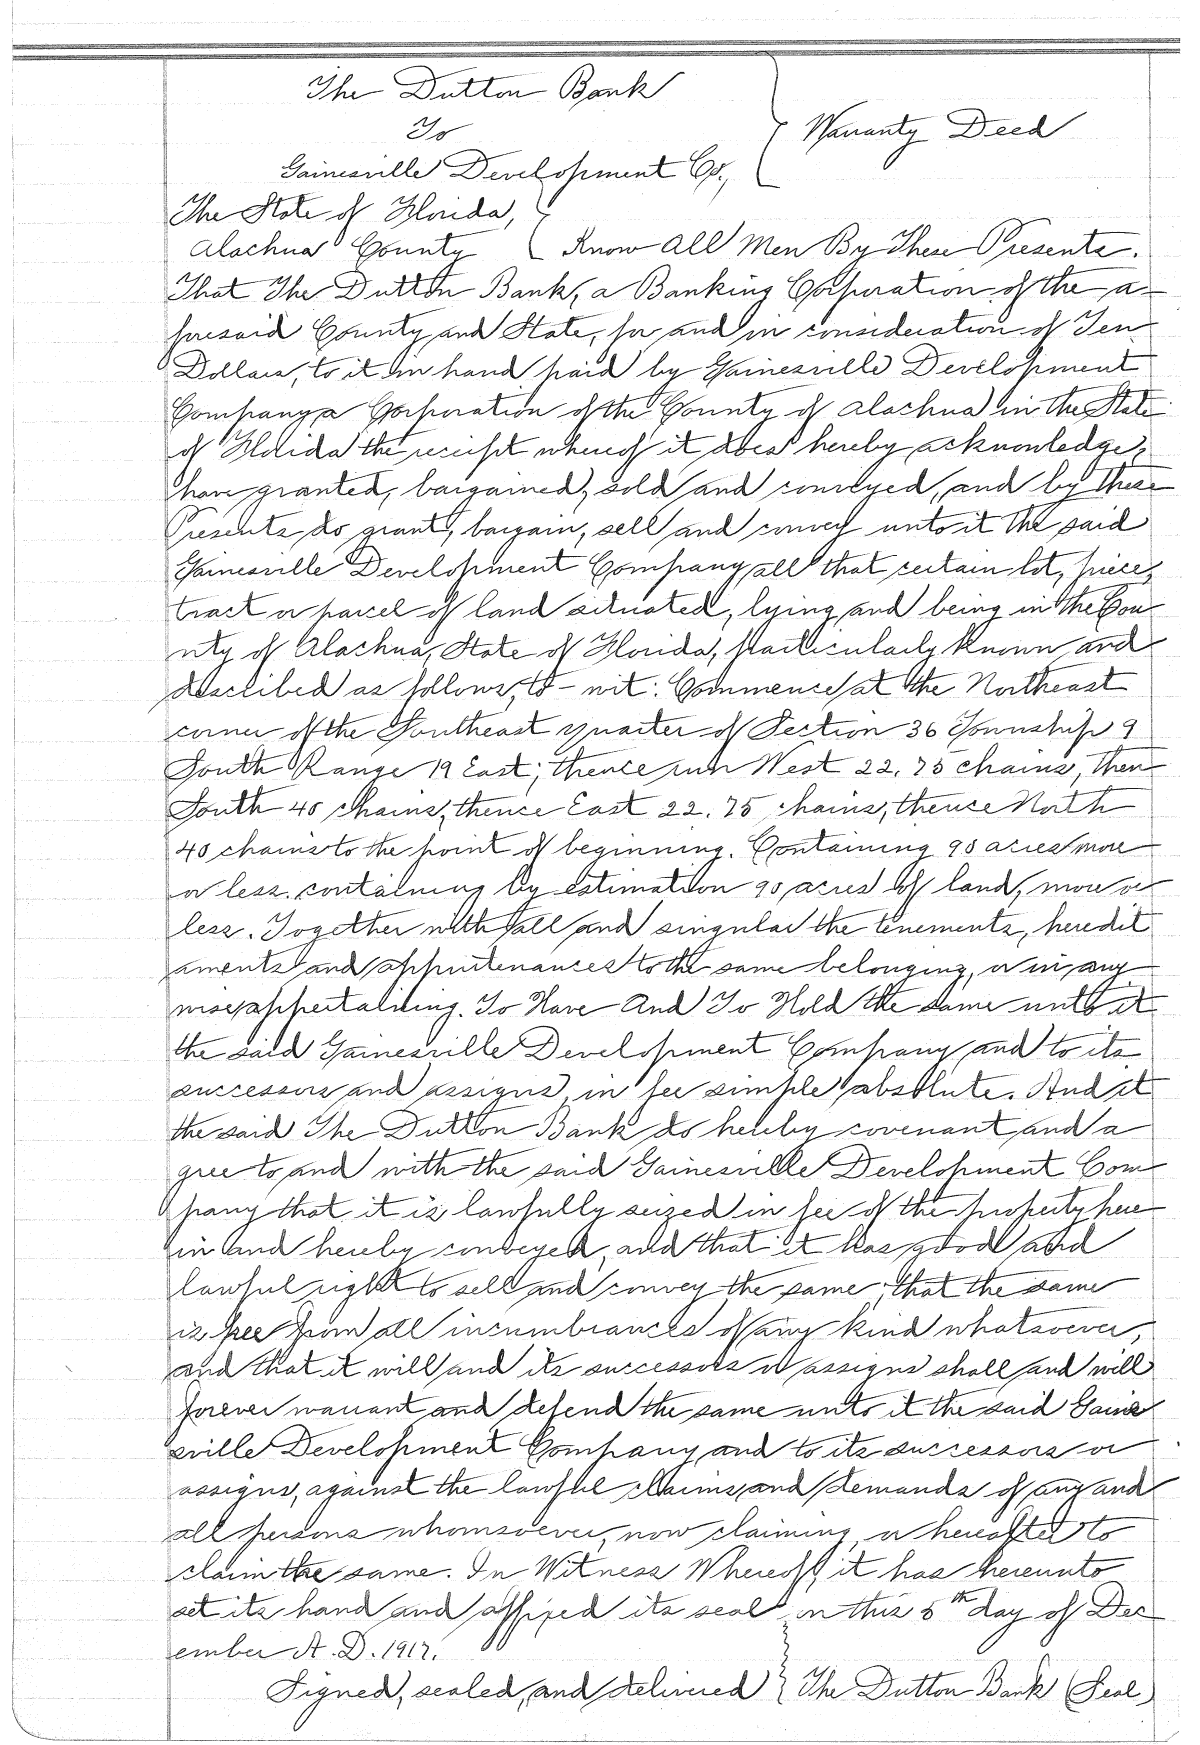 The Dutton Bank
To
Warranty Deed
Gainesville Development Co.,
The State of Florida,
Alachua County Know All Men By These Presents.
That The Dutton Bank, a Banking Corporation of the a-
foresaid County and State, for and in consideration of Ten
Dollars, to it in hand paid by Gainesville Development
Company a Corporation of the County of Alachua in the State
of Florida the receipt whereof it does hereby acknowledge,
have granted, bargained, sold and conveyed, and by these
Presents do grant, bargain, sell and convey unto it the said
Gainesville Development Company all that certain lot, piece,
tract or parcel of land situated, lying and being in the Cou
nty of Alachua, State of Florida, particularly known and
described as follows, to-wit: Commence at the Northeast
corner of the Southeast quarter of Section 36 Township 9
South Range 19 East; thence run West 22.75 chains, then
South 40 chains, thence East 22.75 chains, thence North
40 chains to the point of beginning. Containing 90 acres more
or less. containing by estimation 90 acres of land, more or
less. Together with all and singular the tenements, heredit
aments and appurtenances to the same belonging, or in any
wise appertaining. To Have And To Hold the same unto it
the said Gainesville Development Company and to its
successors and assigns, in fee simple absolute. And it
the said The Dutton Bank do hereby covenant and a
gree to and with the said Gainesville Development Com
pany that it is lawfully seized in fee of the property here
in and hereby conveyed, and that it has good and
lawful right to sell and convey the same; that the same
is free from all incumbrances of any kind whatsoever,
and that it will and its successors or assigns shall and will
forever warrant and defend the same unto it the said Gaine
sville Development Company and to its successors or
assigns, against the lawful claims and demands of any and
all persons whomsoever, now claiming, or hereafter to
claim the same. In Witness Whereof, it has hereunto
set its hand and affixed its seal on this 5th day of Dec
ember A.D. 1917.
Signed, sealed, and delivered The Dutton Bank (Seal)